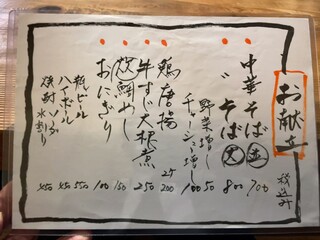 お献立
税込み
中華そば 並 700
〃 そば 大 800
野菜増し 50
チャーシュー増し 100
鶏唐揚 2ケ 200
牛すじ大根煮 250
焼鯖めし 150
おにぎり 100
瓶ビール 550
ハイボール 450
焼酎 いも 水割り 450